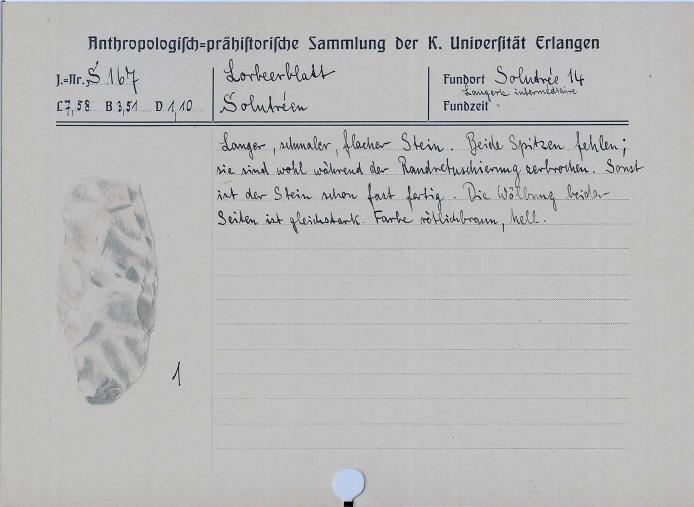 Anthropologisch=prähistorische Sammlung der K. Universität Erlangen
J.=Nr. S 167
L 7,58 B 3,51 D 1,10
Lorbeerblatt
Solutréen
Fundort Solutrée 14
Laugerie intermédiaire
Fundzeit
Langer, schmaler, flacher Stein. Beide Spitzen fehlen;
sie sind wohl während der Randretuschierung zerbrochen. Sonst
ist der Stein schon fast fertig. Die Wölbung beider
Seiten ist gleichstark. Farbe rötlichbraun, hell.
1